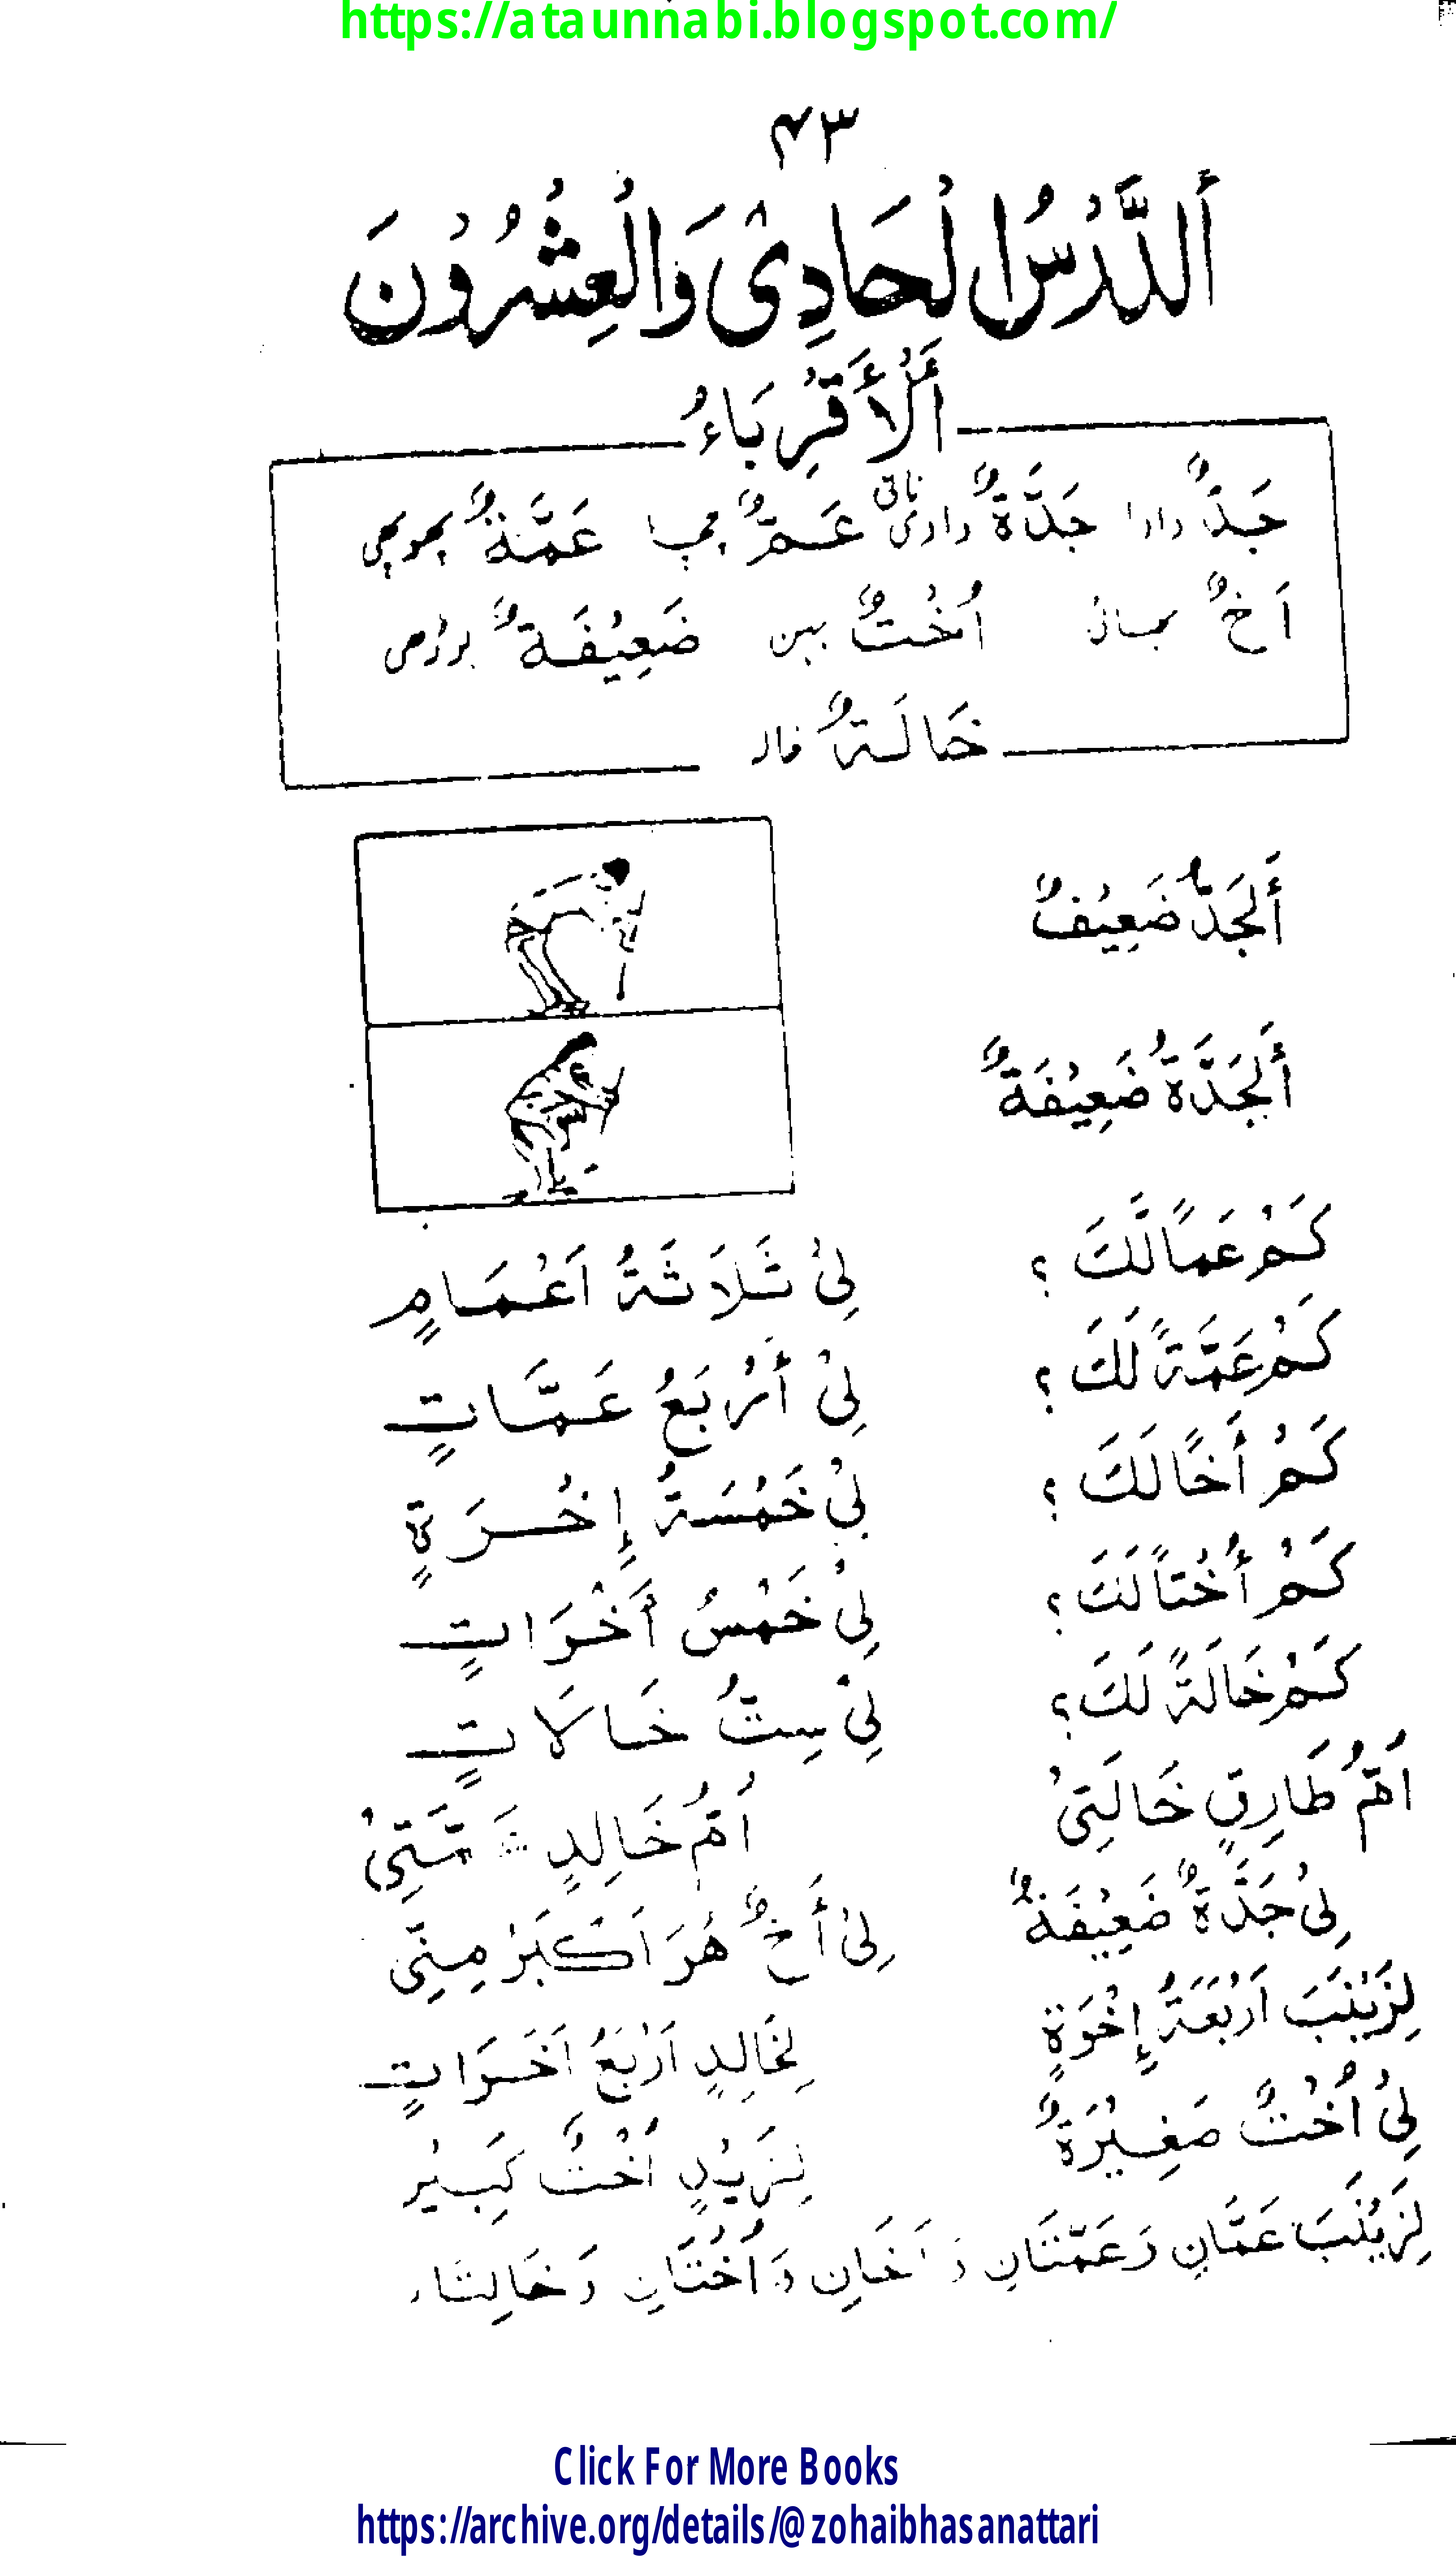 https://ataunnabi.blogspot.com/
۴۳
أَلدَّرْسُ الْحَادِىْ وَالْعِشْرُوْنَ
أَلْأَقْرِبَاءُ
جَدٌّ دادا جَدَّةٌ دادی نانی عَمٌّ چچا عَمَّةٌ پھوپھی
اَخٌ بھائی اُخْتٌ بہن ضَعِيْفَةٌ بوڑھی
خَالَةٌ خالہ
أَلْجَدُّ ضَعِيْفٌ
أَلْجَدَّةُ ضَعِيْفَةٌ
كَمْ عَمًّا لَّكَ ؟ لِىْ ثَلَاثَةُ اَعْمَامٍ
كَمْ عَمَّةً لَكَ ؟ لِىْ أَرْبَعُ عَمَّاتٍ
كَمْ أَخًا لَكَ ؟ لِىْ خَمْسَةُ إِخْوَةٍ
كَمْ أُخْتًا لَكَ ؟ لِىْ خَمْسُ أَخْوَاتٍ
كَمْ خَالَةً لَكَ ؟ لِىْ سِتُّ خَالَاتٍ
اُمُّ طَارِقٍ خَالَتِىْ اُمُّ خَالِدٍ
لِىْ جَدَّةٌ ضَعِيْفَةٌ لِىْ أَخٌ هُوَ اَكْبَرُ مِنِّى
لِزَيْنَبَ اَرْبَعَةُ إِخْوَةٍ لِخَالِدٍ اَرْبَعُ اَخَوَاتٍ
لِىْ اُخْتٌ صَغِيْرَةٌ لِزَيْدٍ اُخْتٌ
لِزَيْنَبَ عَمَّانِ وَعَمَّتَانِ وَ اَخَانِ وَ اُخْتَانِ وَ
Click For More Books
https://archive.org/details/@zohaibhasanattari